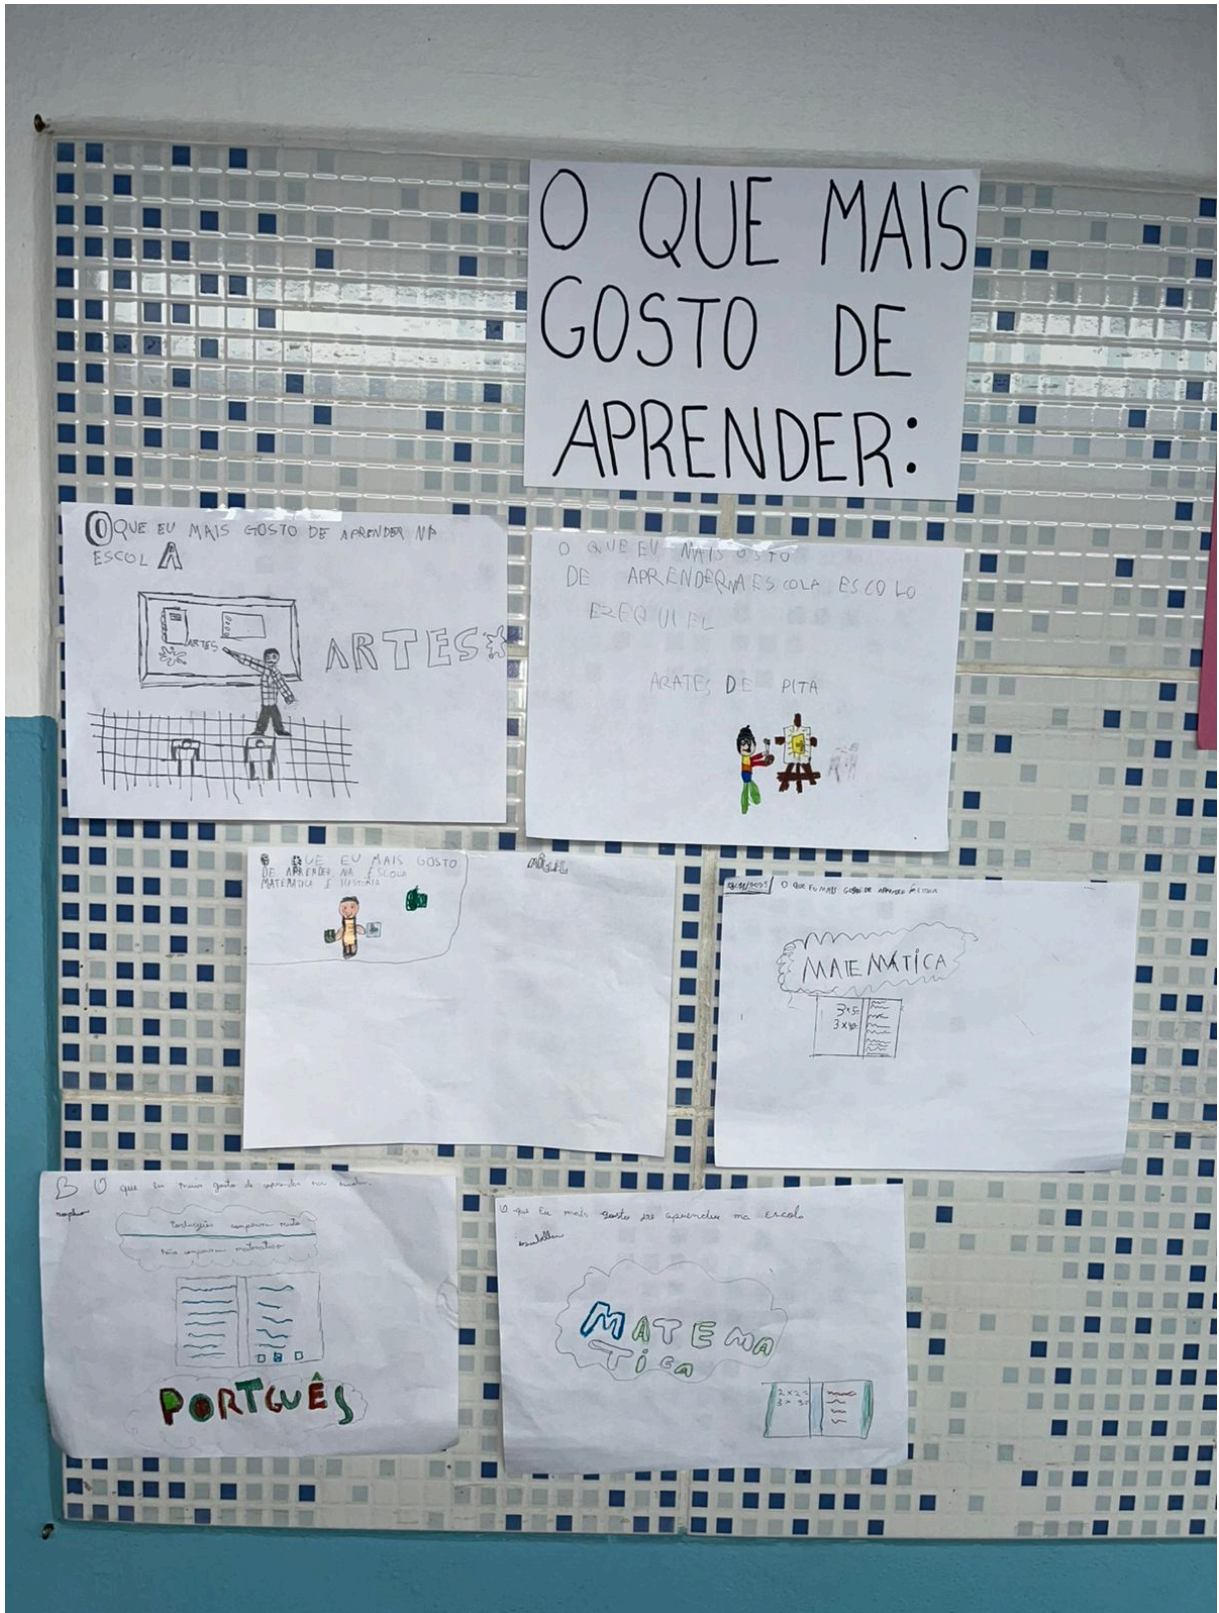 O QUE MAIS
GOSTO DE
APRENDER:
O QUE EU MAIS GOSTO DE APRENDER NA
ESCOLA
ARTES
ARTES
O QUE EU MAIS OSTO
DE APRENDERNA ESCOLA ESCOLO
EZEQUIEL
ARATES DE PITA
O QUE EU MAIS GOSTO
DE APRENDER NA ESCOLA
MATEMÁTICA E HISTÓRIA
O QUE EU MAIS GOSTO DE APRENDER
MATEMÁTICA
3×5=
3×
O que eu mais gosto de aprender na
Português
matemática
PORTGUÊS
O que Eu mais gosto de aprender na escola
MATEMA
TiCA
2×2=
3×3=